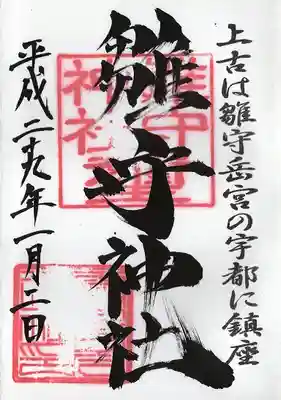 上古は雛守岳宮の宇都に鎮座
雛守神社
平成二十九年一月二日